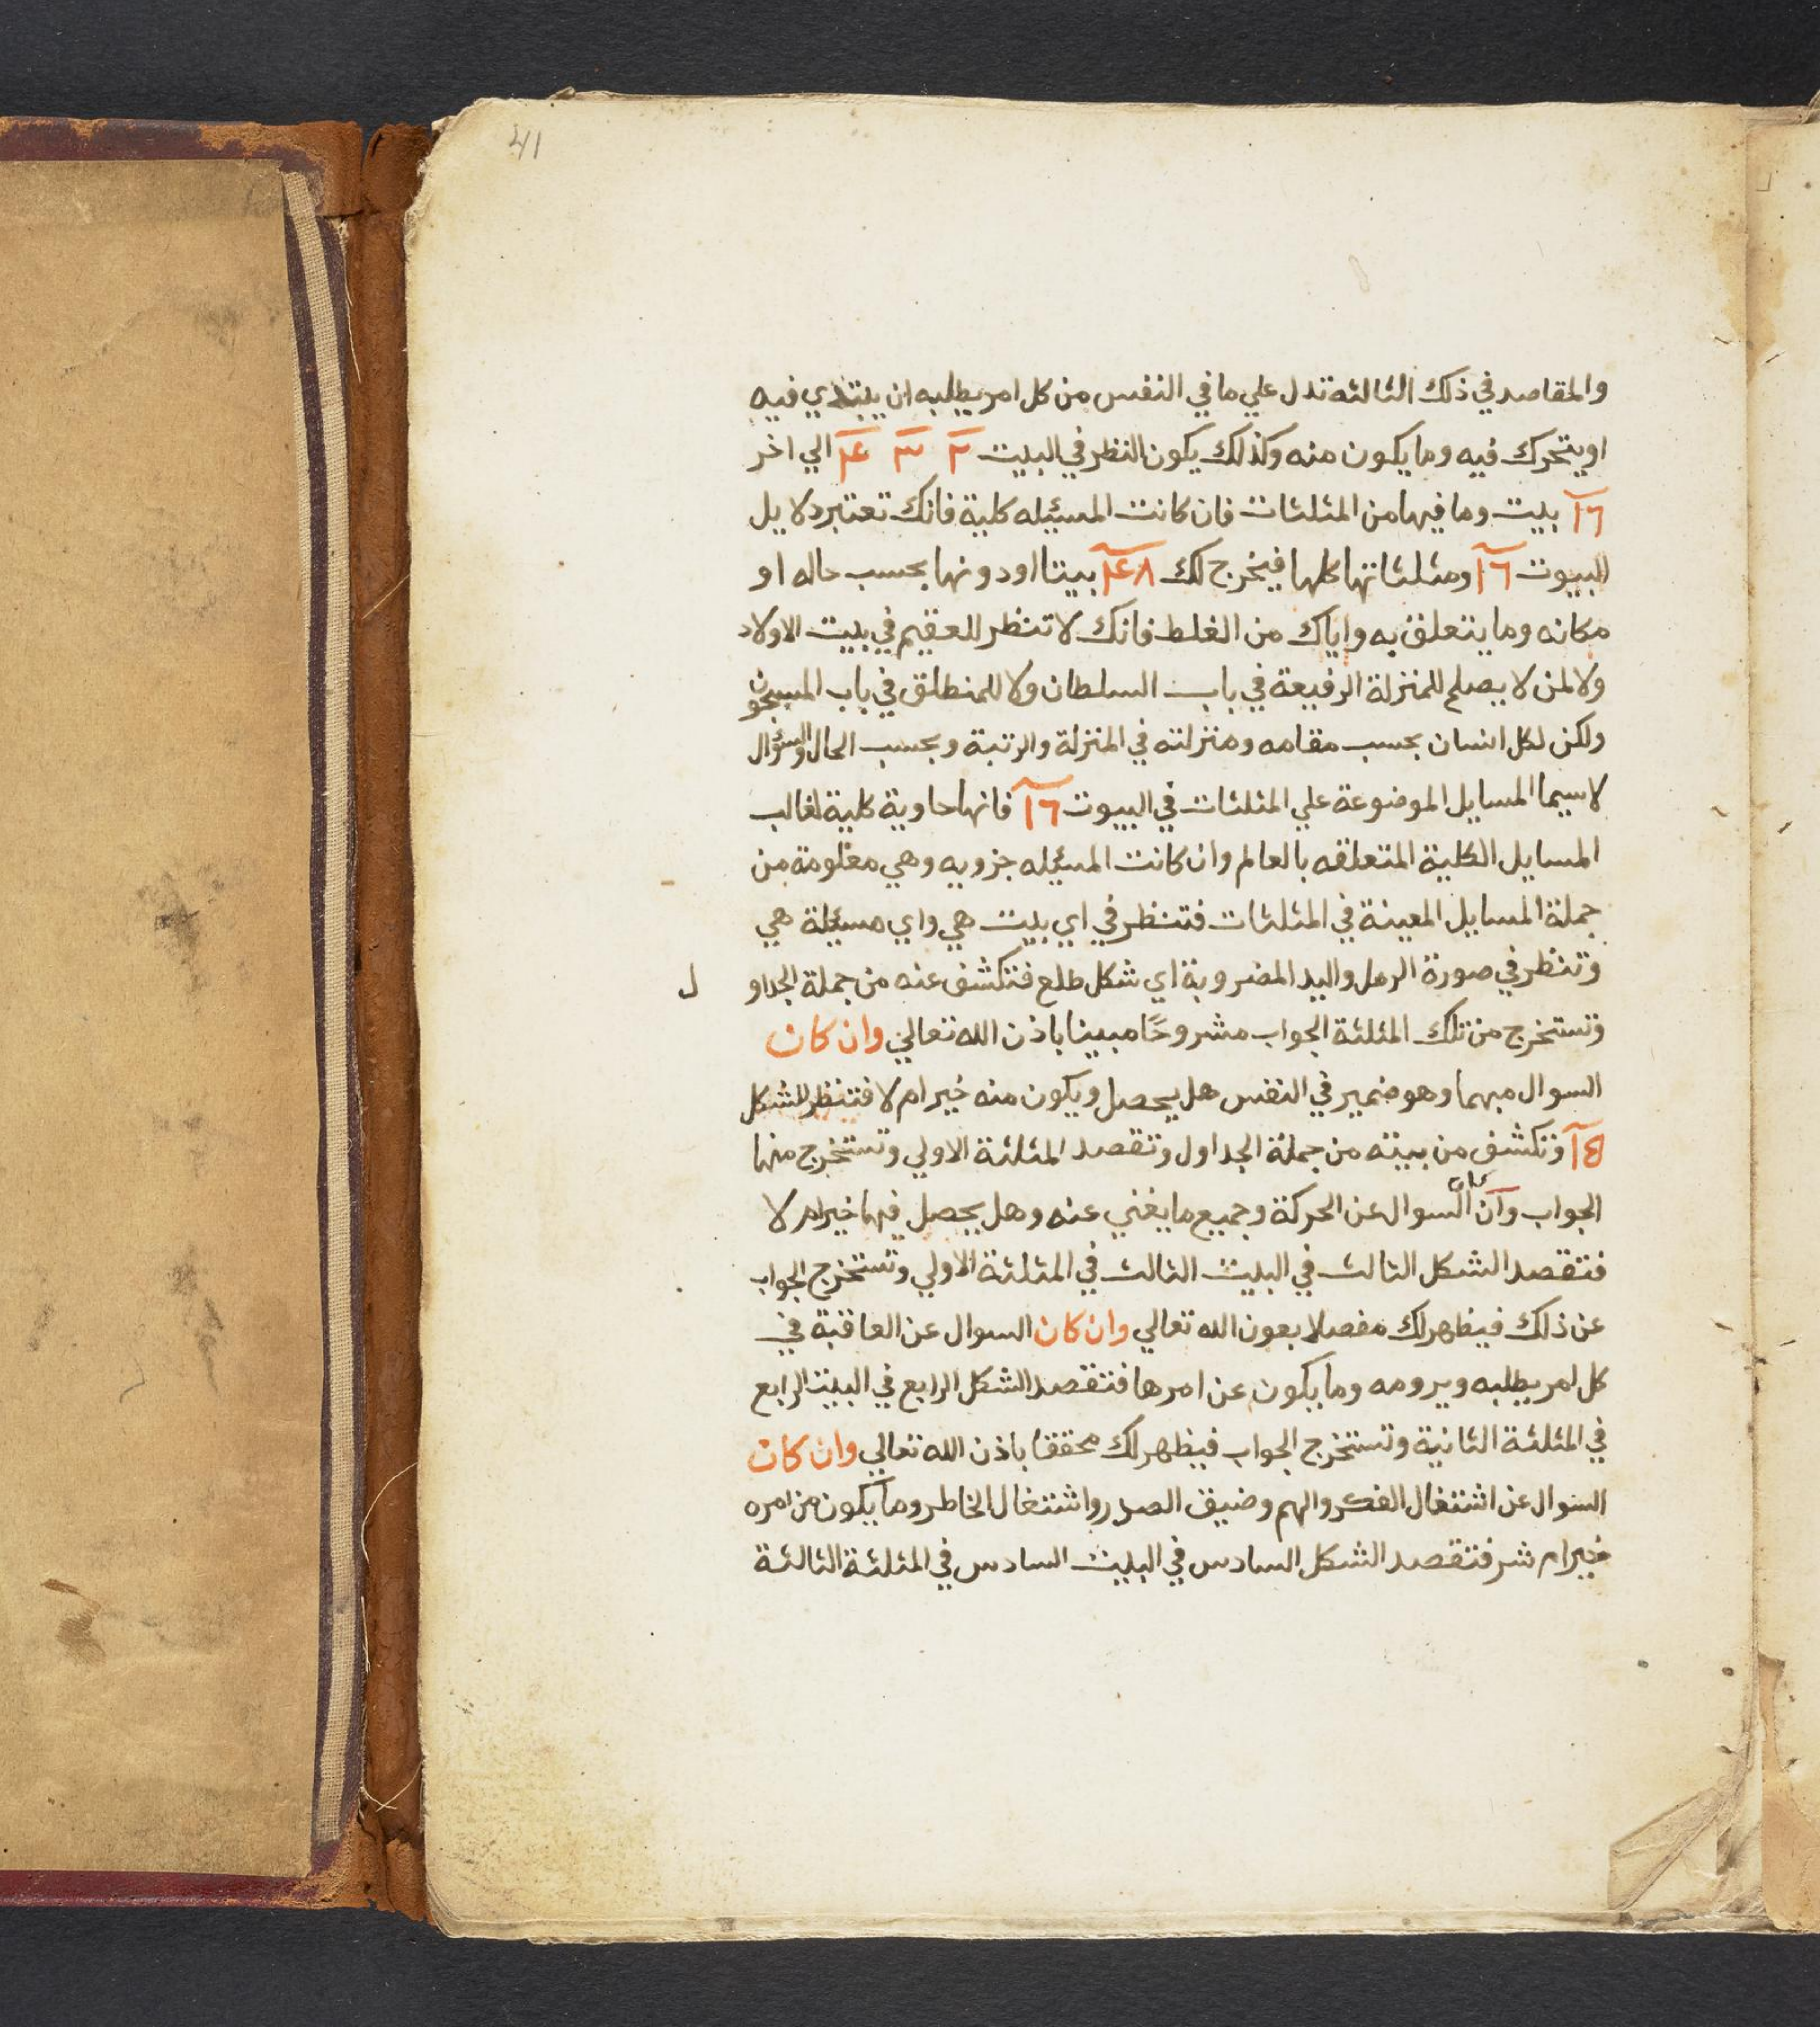 41
والمقاصد في ذلك الثالثه تدل علي ما في النفس من كل امر يطلبه ان يبتدي فيه
او يتحرك فيه وما يكون منه وكذلك يكون النظر في البيت ٢ ٣ ٤ الي اخر
١٦ بيت وما فيها من المثلثات فان كانت المسيله كلية فانك تعتبر دلايل
البيوت ١٦ ومثلثاتها كلها فيخرج لك ٤٨ بيتا او دونها بحسب حاله او
مكانه وما يتعلق به واياك من الغلط فانك لا تنظر للعقيم في بيت الاولاد
ولا لمن لا يصلح للمنزلة الرفيعة في باب السلطان ولا للمنطلق في باب المسجون
ولكن لكل انسان بحسب مقامه ومنزلته في المنزلة والرتبة وبحسب الحال والسؤال
لا سيما المسايل الموضوعة علي المثلثات في البيوت ١٦ فانها حاوية كلية لغالب
المسايل الكلية المتعلقه بالعالم وان كانت المسيله جزويه وهي معلومة من
جملة المسايل المعينة في المثلثات فتنظر في اي بيت هي واي مسيلة هي
وتنظر في صورة الرمل واليد المضروبة اي شكل طلع فتكشف عنه من جملة الجداو ل
وتستخرج من تلك المثلثة الجواب مشروحًا مبينا باذن الله تعالي وان كان
السوال مبهما وهو ضمير في النفس هل يحصل ويكون منه خير ام لا فتنظر للشكل
١٥ وتكشف من بيته من جملة الجداول وتقصد المثلثة الاولي وتستخرج منها
الجواب وان كان السوال عن الحركة وجميع ما يغني عنه وهل يحصل فيها خير ام لا
فتقصد الشكل الثالث في البيت الثالث في المثلثة الاولي وتستخرج الجواب
عن ذلك فيظهر لك مفصلا بعون الله تعالي وان كان السوال عن العاقبة في
كل امر يطلبه ويرومه وما يكون عن امرها فتقصد الشكل الرابع في البيت الرابع
في المثلثة الثانية وتستخرج الجواب فيظهر لك محققا باذن الله تعالي وان كان
السوال عن اشتغال الفكر والهم وضيق الصدر واشتغال الخاطر وما يكون من امره
خير ام شر فتقصد الشكل السادس في البيت السادس في المثلثة الثالثة